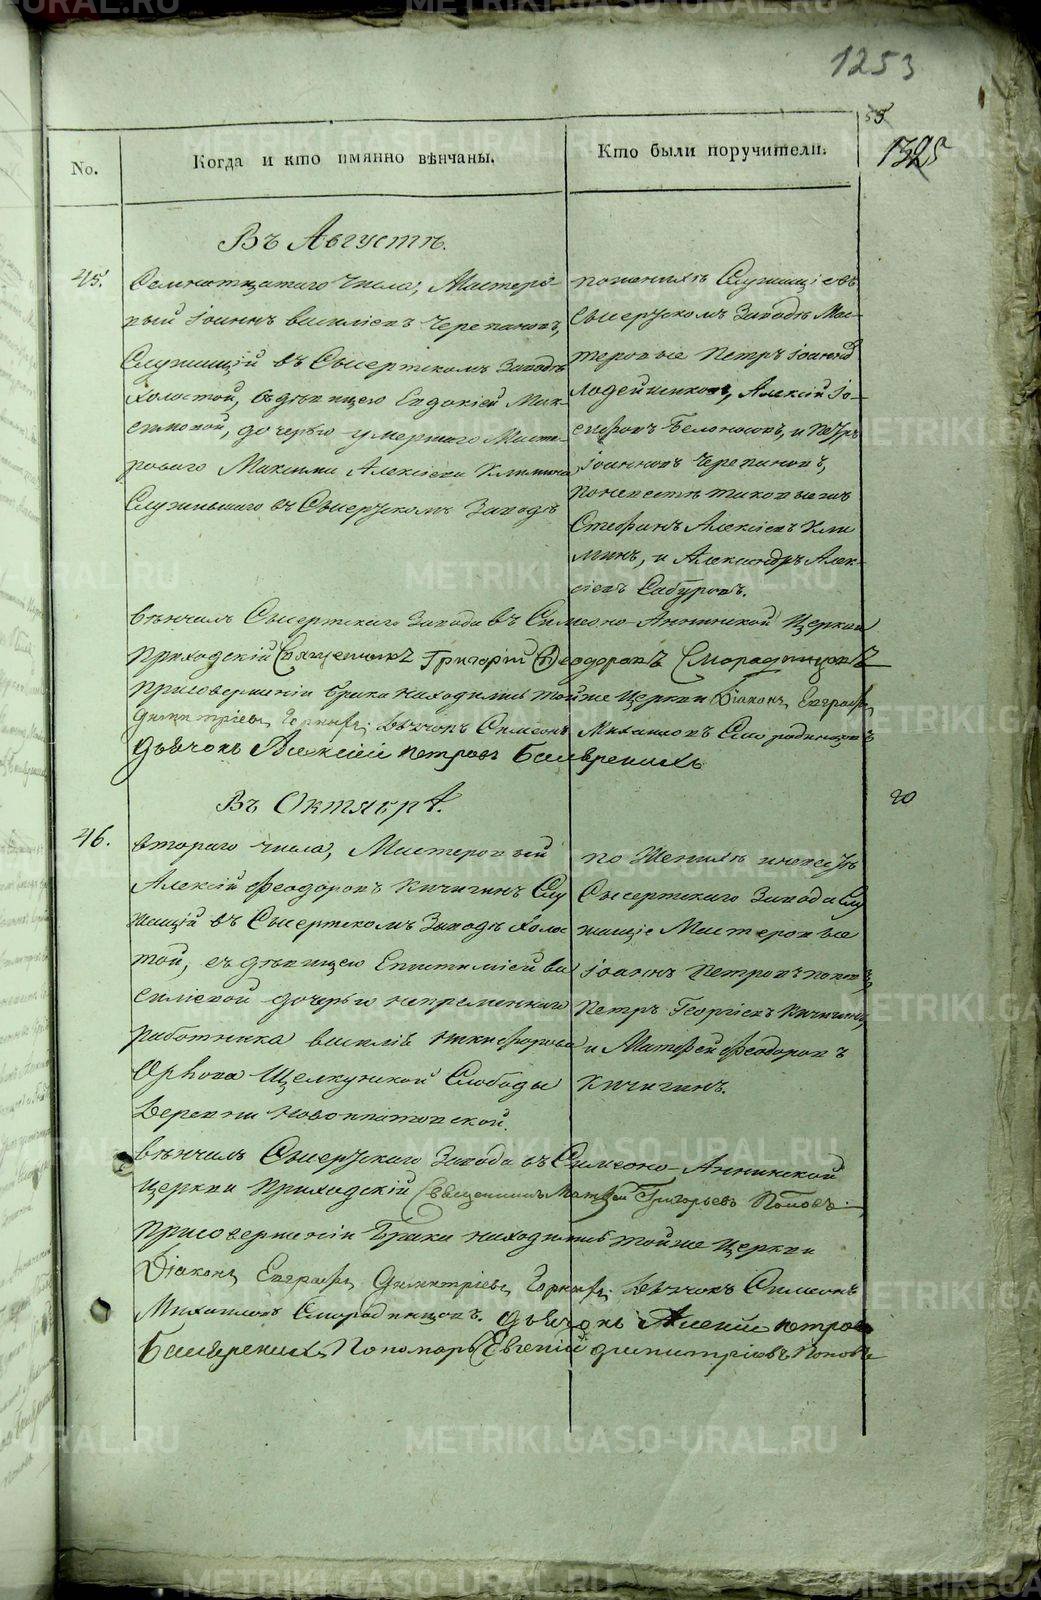 1253
55
1325
No.
Когда и кто имянно вѣнчаны.
Кто были поручители.
Въ Августѣ.
45.
Семнатцатаго Числа, Мастеро-
вый Іоаннъ Василіевъ Черепановъ,
Служащій въ Сысертскомъ Заводѣ
Холостой, съ дѣвицею Евдокіей Мак-
симовой, дочерью умершаго Масте-
роваго Максима Алексіева Климина
Служившаго въ Сысертскомъ Заводѣ
По женихѣ Служащіе въ
Сысертскомъ Заводѣ Мас-
теровые Петръ Іоанновъ
Лодейшиковъ, Алексій Іо-
сифовъ Белоносовъ, и Петръ
Іоанновъ Черепановъ,
По невестѣ таковые жъ
Стефанъ Алексіевъ Кли
минъ, и Александръ Алек-
сіевъ Сабуровъ.
Вѣнчалъ Сысертскаго Завода въ Симеоно-Аннинской Церкви
Приходскій Священникъ Григорій Феодоровъ Смородинцовъ
При совершеніи брака находились той же Церкви Діаконъ Евграфъ
Димитріевъ Дьячокъ Симеонъ Михаиловъ Смородинцовъ
Дьячокъ Алексій Петровъ
Въ Октябрѣ.
20
46.
Втораго числа, Мастеровый
Алексій Феодоровъ Кичигинъ Слу
жащій въ Сысертскомъ Заводѣ Холос
той, съ дѣвицею Епистиміей Ва
силіевой дочерью непременнаго
работника Василія Никифорова
Орлова Щелкунской Слободы
Деревни Новоипатовской.
По Женихѣ и невестѣ
Сысертскаго Завода Слу
жащіе Мастеровые
Іоаннъ Петровъ
Петръ Георгіевъ Кичигинъ
и Матфей Феодоровъ
Кичигинъ.
Вѣнчалъ Сысертскаго Завода въ Симеоно-Аннинской
Церкви Приходскій Священникъ Матвей Григорьевъ Поповъ.
При совершеніи Брака находились той же Церкви
Діаконъ Евграфъ Димитріевъ Дьячокъ Симеонъ
Михаиловъ Смородинцовъ. Дьячокъ Алексій Петровъ
Пономарь Евгений Димитріевъ Поповъ
METRIKI.GASO-URAL.RU